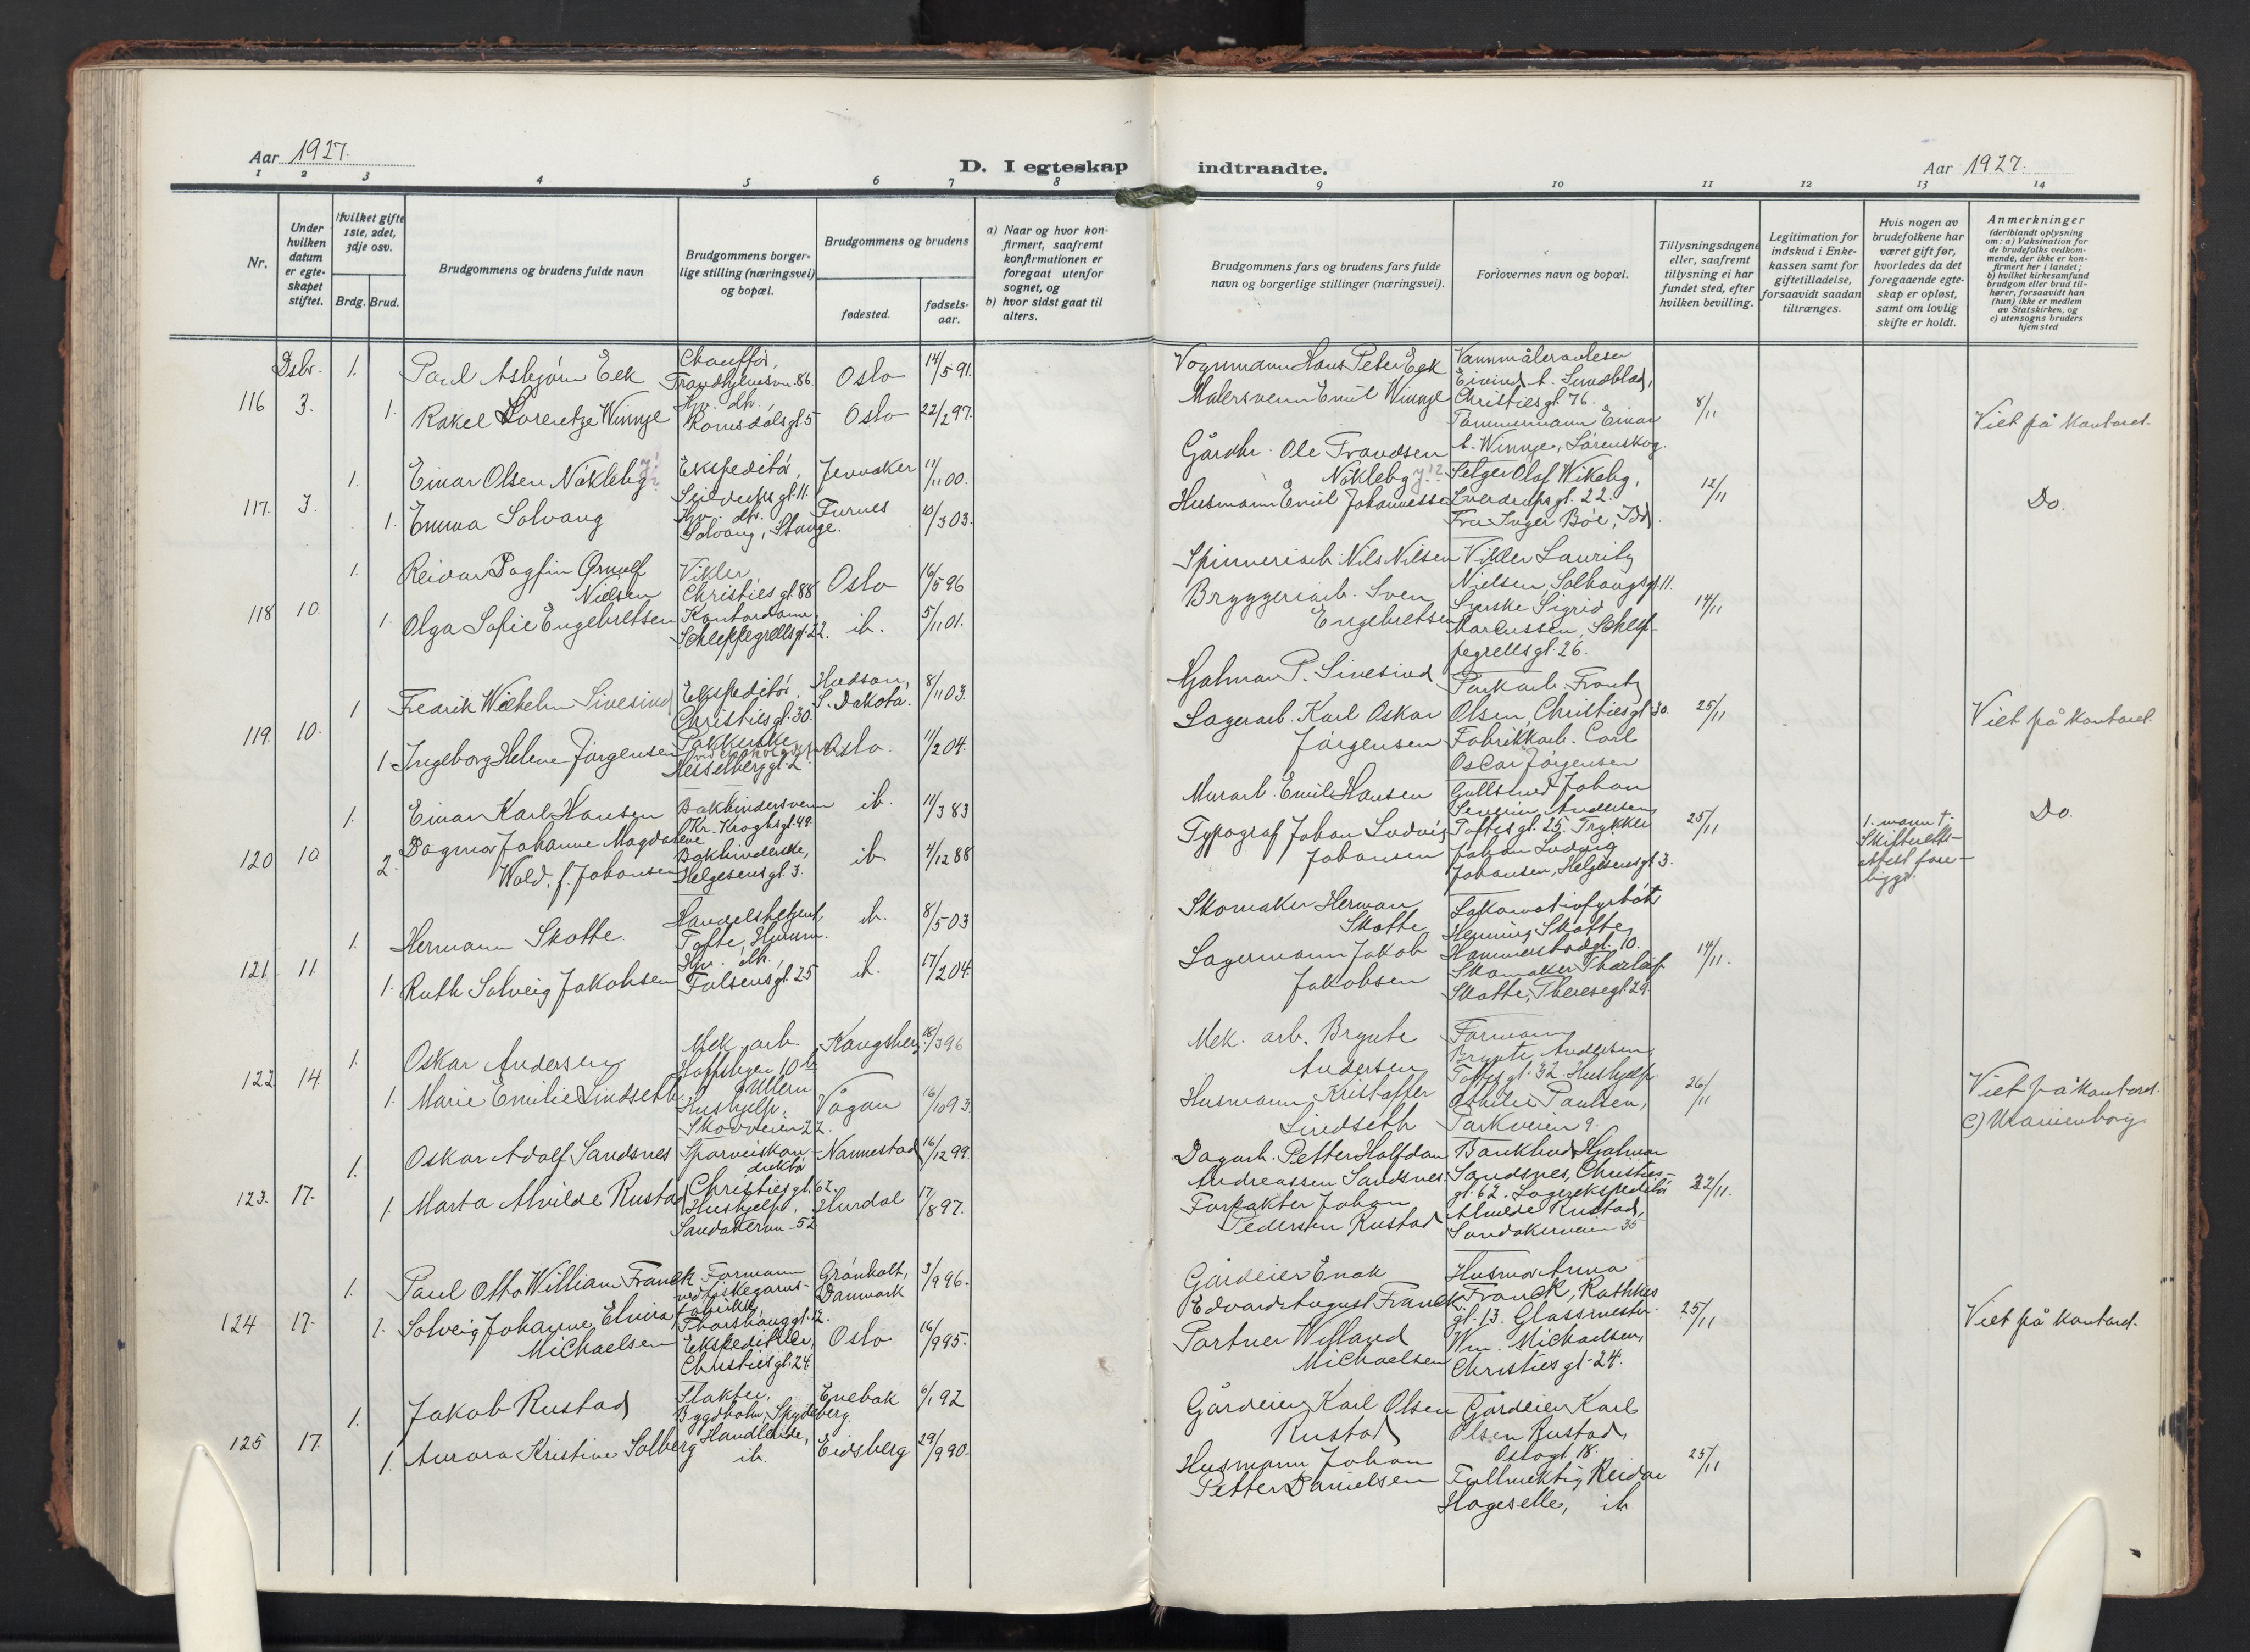 Aar 1927.
D. I egteskap
indtraadte.
Aar 1927.
1 2 3 4 5 6 7 8 9 10 11 12 13 14
Nr.
Under hvilken datum er egte-skapet stiftet.
Hvilket gifte 1ste, 2det, 3dje osv.
Brdg. Brud.
Brudgommens og brudens fulde navn
Brudgommens borger-lige stilling (næringsvei) og bopæl.
Brudgommens og brudens
fødested.
fødsels-aar.
a) Naar og hvor kon-firmert, saafremt konfirmationen er foregaat utenfor sognet, og
b) hvor sidst gaat til alters.
Brudgommens fars og brudens fars fulde navn og borgerlige stillinger (næringsvei).
Forlovernes navn og bopæl.
Tillysningsdagene eller, saafremt tillysning ei har fundet sted, efter hvilken bevilling.
Legitimation for indskud i Enke-kassen samt for giftetilladelse, forsaavidt saadan tiltrænges.
Hvis nogen av brudefolkene har været gift før, hvorledes da det foregaaende egte-skap er opløst, samt om lovlig skifte er holdt.
Anmerkninger
(deriblandt oplysning om: a) Vaksination for de brudefolks vedkom-mende, der ikke er kon-firmert her i landet; b) hvilket kirkesamfund brudgom eller brud til-hører, forsaavidt han (hun) ikke er medlem av Statskirken, og c) utensogns bruders hjemsted
Dsbr. 1. Paul Asbjørn Eek
Chauffør,
Trondhjemsvn. 86.
Oslo 14/5 91.
Vognmann Hans Peter Eek
Vannmåleravleser
Eivind A. Sundblad,
Christiesgt. 76.
116 3. 1. Rakel Lorentze Winnje
Hv. dtr.
Romsdalsgt. 5
Oslo 22/2 97.
Malersvenn Emil Winnje
Tømmermann Einar
A. Winnje, Lørenskog.
8/11
Viet på kontoret.
1. Einar Olsen Nökleby
Ekspeditör,
Seilduksgt. 11.
Jevnaker 11/11 00.
Gårdbr. Ole Trondsen
Nökleby
Selger Olaf Wikeby,
Sverdrupsgt. 22.
117. 3. 1. Emma Solvang
Hv. dtr.
Solvang, Stange.
Furnes 10/3 03.
Husmann Emil Johannessen
Fru Inger Böe, Ibd.
12/11
Do.
1. Reidar Dagfin Ørnulf
Nielsen
Vikler,
Christiesgt. 88
Oslo 16/5 96
Spinneriarb. Nils Nilsen
Vikler Lauritz
Nielsen, Solhaugsgt. 11.
118 10. 1. Olga Sofie Engebretsen
Kontordame,
Schleppegrellsgt. 22.
ib. 5/11 01.
Bryggeriarb. Sven
Engebretsen
Syerske Sigrid
Marcussen, Schlep-
pegrellsgt. 26.
14/11
1 Fredrik Wilhelm Sivesind
Ekspeditör,
Christiesgt. 30.
Hudson,
S. Dakota. 8/11 03.
Hjalmar P. Sivesind
Parkarb. Frantz
Olsen, Christiesgt. 30.
119. 10. 1. Ingeborg Helene Jørgensen
Pakkerske
Hesselberggt. 2.
Oslo. 11/2 04.
Lagerarb. Karl Oskar
Jørgensen
Fabrikkarb. Carl
Oscar Jørgensen
25/11
Viet på kontoret.
1. Einar Karl Hansen
Bokbindersvenn
Kr. Kroghsgt. 49.
ib. 11/3 83
Murarb. Emil Hansen
Gullsmed Johan
Severin Andersen
Toftesgt. 25. Trykker
120 10 2. Dagmar Johanne Magdalene
Wold, f. Johansen
Bokbinderske,
Helgesensgt. 3.
ib 4/12 88
Typograf Johan Ludvig
Johansen
Johan Ludvig
Johansen, Helgesensgt. 3.
25/11
1. mann †.
Skifteretts-
attest fore-
ligger.
Do.
1. Hermann Skotte.
Handelsbetjent,
Tofte, Hurum.
ib. 8/5 03
Skomaker Herman
Skotte
Lokomotivfyrböter
Henning Skotte,
Hammerstadgt. 10.
121 11. 1. Ruth Solveig Jakobsen
Hv. dtr.,
Falsensgt. 25
ib. 17/2 04.
Lagermann Jakob
Jakobsen
Skomaker Thorleif
Skotte, Theresegt. 29.
14/11.
1. Oskar Andersen
Mek. arb.
Hoffsveien 10 b
Ullern
Kongsberg 18/3 96
Mek. arb. Brynte
Andersen
Formann
Brynte Andersen,
Toftesgt. 32. Hushjelp
122 14. 1. Marie Emilie Lindseth
Hushjelp,
Skovveien 22.
Vågan 16/10 93.
Husmann Kristoffer
Lindseth
Othilie Paulsen,
Parkveien 9.
26/11
Viet på kontoret.
C) Uranienborg
1. Oskar Adolf Sandsnes
Sporveiskon-
duktör
Christiesgt. 62.
Nannestad 16/12 99.
Dagarb. Petter Halfdan
Andreassen Sandsnes.
Bankbud Hjalmar
Sandsnes, Christies-
gt. 62. Lagerekspeditör
123. 17. 1. Marta Alvilde Rustad
Hushjelp,
Sandakervn. 52
Hurdal 17/8 97.
Forpakter Johan
Pedersen Rustad
Rustad,
Sandakerveien 35
22/11.
1. Paul Otto William Franck
Formann
ved fiskegarns-
fabrikk,
Thorshauggt. 12.
Grönholt,
Danmark 3/9 96.
Gårdeier Enok
Edvard August Franck
Husmor Anna
Franck, Rathkes
gt. 13. Glassmester
124 17. 1. Solveig Johanne Elvira
Michaelsen
Ekspeditrise,
Christiesgt. 24
Oslo 16/9 95.
Portner Willand
Michaelsen
Wm. Michaelsen,
Christiesgt. 24.
25/11
Viet på kontoret.
1. Jakob Rustad
Slakter,
Bygdholm, Spydeberg.
Enebak 6/1 92
Gårdeier Karl Olsen
Rustad
Gårdeier Karl
Olsen Rustad,
Oslogt. 18.
125 17. 1. Aurora Kristine Solberg
Handlende,
ib.
Eidsberg 29/9 90.
Husmann Johan
Petter Danielsen
Fullmektig Reidar
Hageselle, ib
25/11